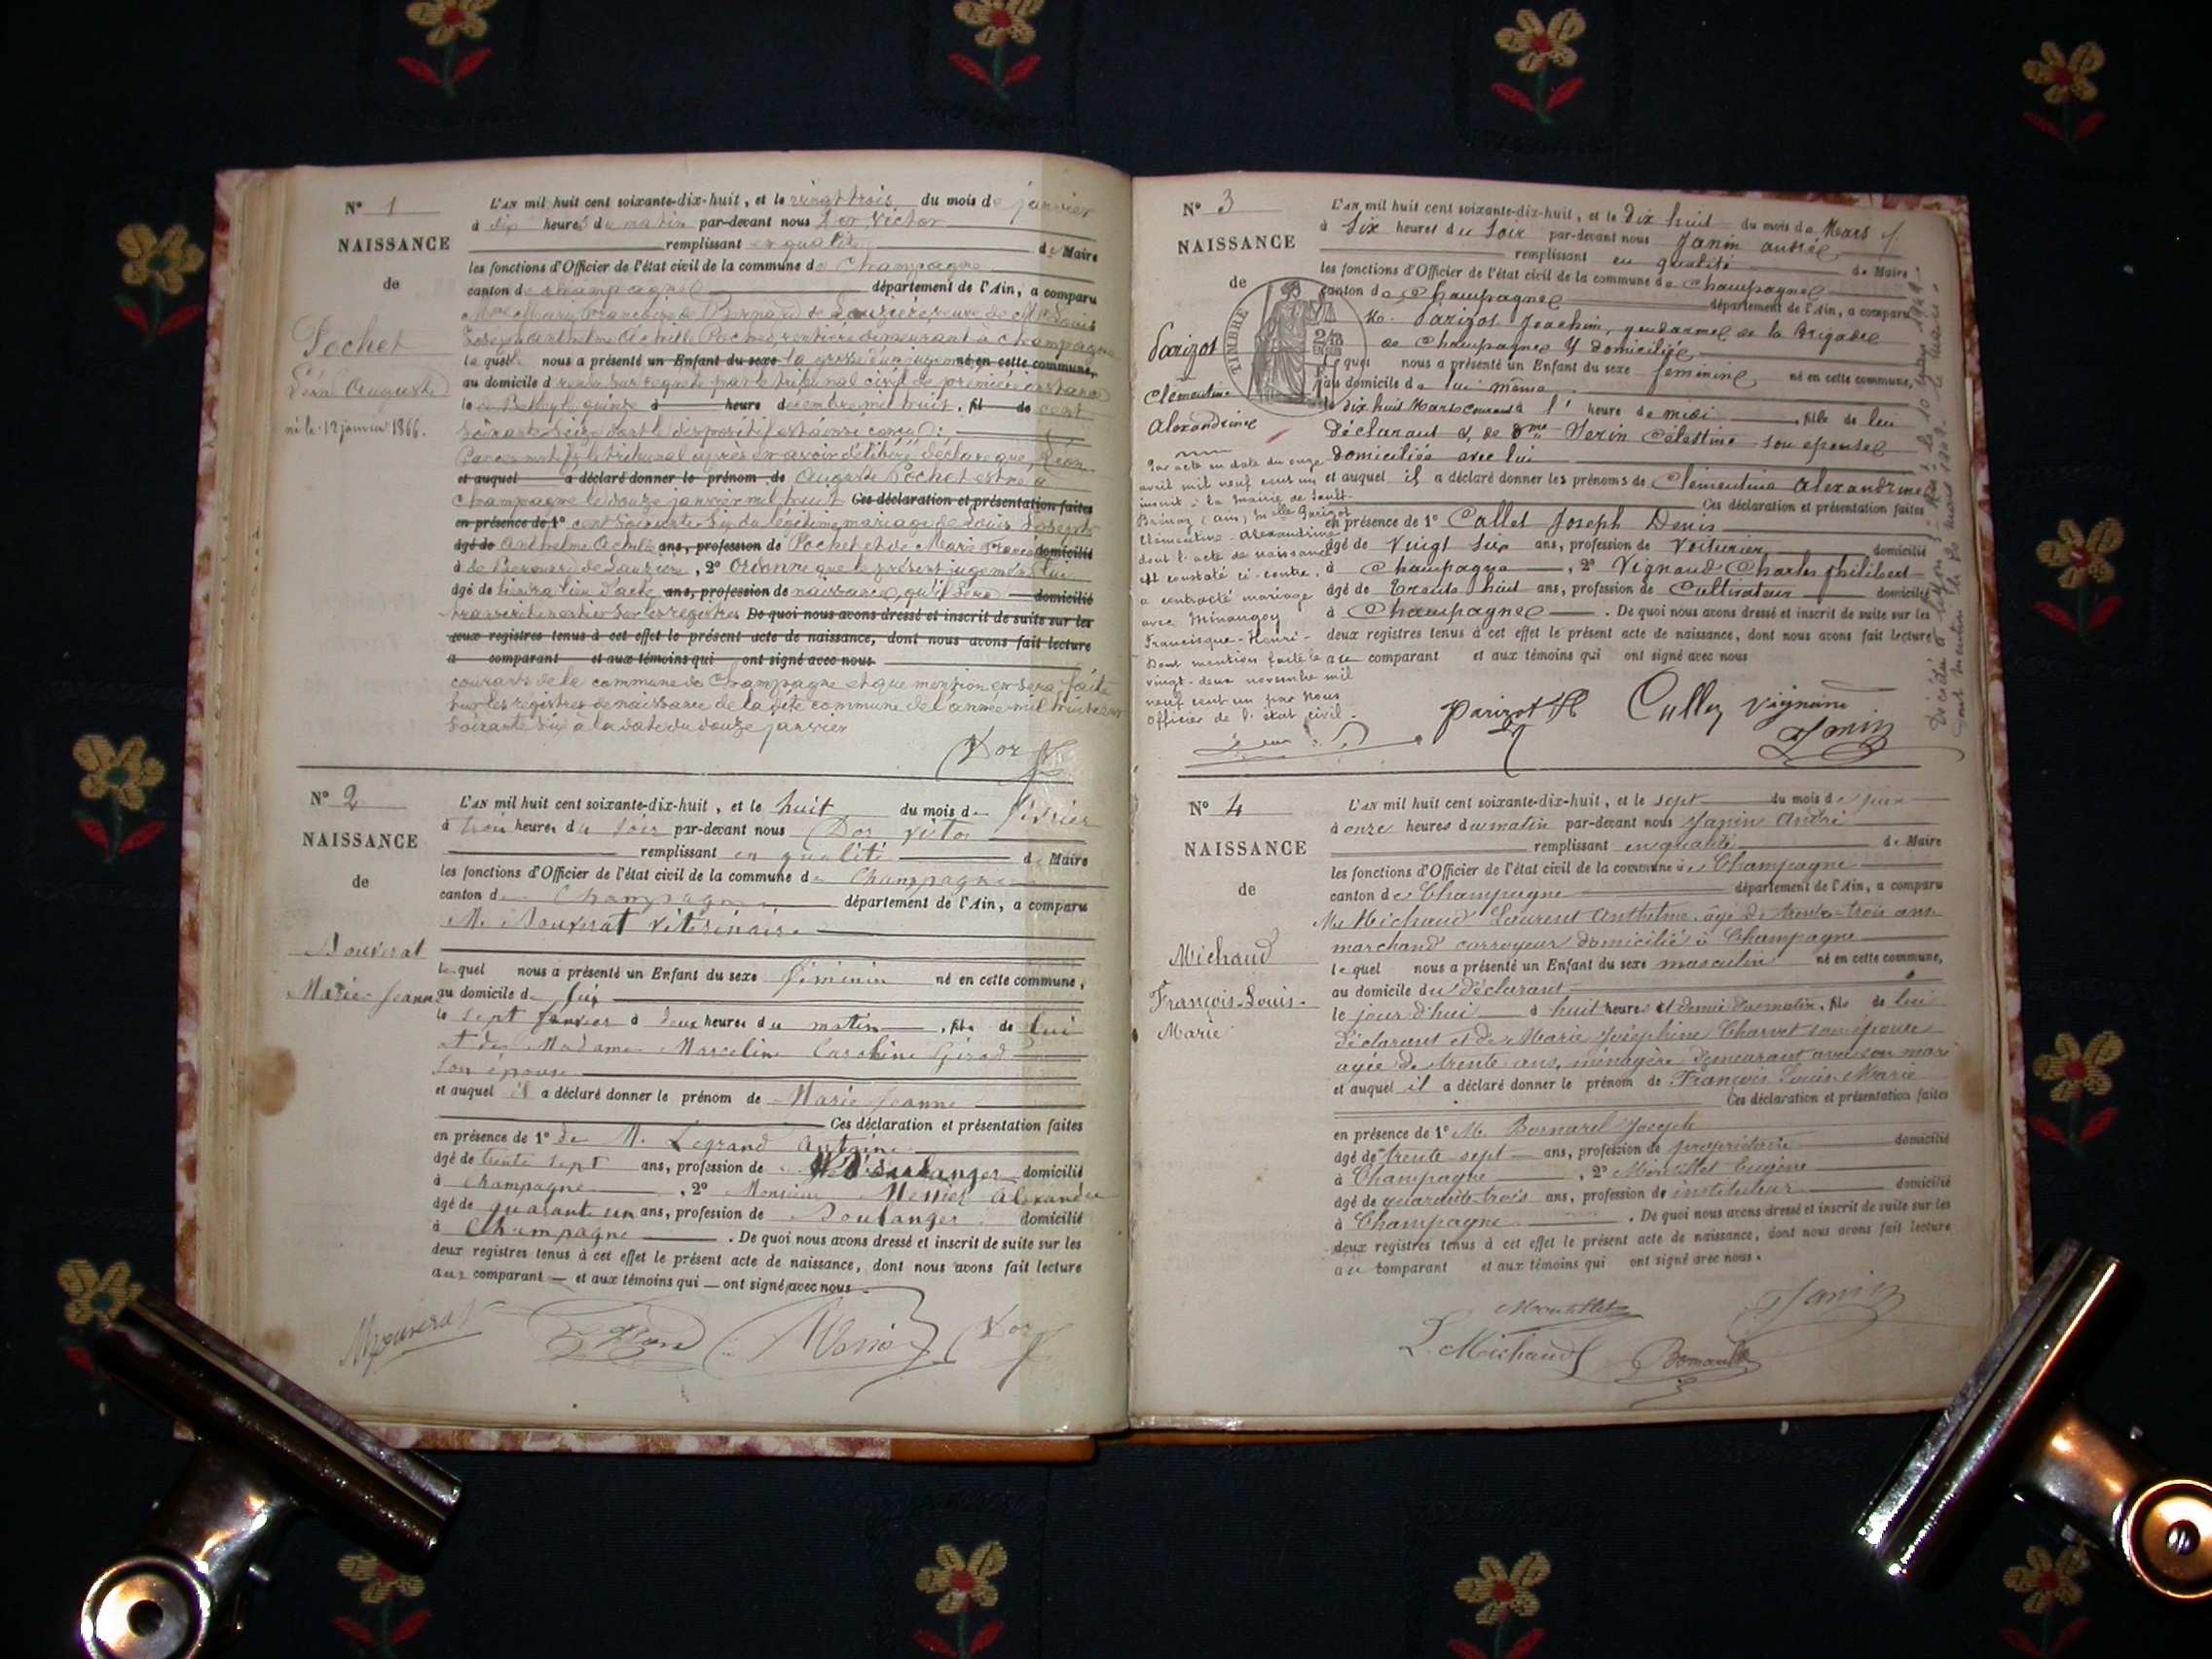 N° 1
NAISSANCE
de
Pochet
Léon Auguste
né le 12 janvier 1866.
L'AN mil huit cent soixante-dix-huit, et le vingt trois du mois de janvier
à dix heures du matin par-devant nous Dor Victor
remplissant en qualité de Maire
les fonctions d'Officier de l'état civil de la commune de Champagne
canton de Champagne département de l'Ain, a comparu
Mme Marie Françoise de Bernard de Lauzière, veuve de Mr Louis
Joseph Anthelme Achille Pochet, rentière demeurant à Champagne
laquelle nous a présenté un Enfant du sexe la grosse d'un jugement né en cette commune,
au domicile d rendu sur requête par le tribunal civil de première instance
le de Belley le quinze à heure décembre mil huit, fil de cent
soixante-seize dont le dispositif est ainsi conçu:
Par ces motifs le tribunal après en avoir délibéré déclare que Léon
et auquel a déclaré donner le prénom de Auguste Pochet est né à
Champagne le douze janvier mil huit Ces déclaration et présentation faites
en présence de 1° cent soixante six du légitime mariage de Louis Joseph
âgé de Anthelme Achille ans, profession de Pochet et de Marie Françoise domicilié
à de Bernard de Lauzière, 2° Ordonne que le présent jugement lui
âgé de tiendra lieu d'acte ans, profession de naissance, qu'il sera domicilié
transcrit en entier sur les registres De quoi nous avons dressé et inscrit de suite sur les
deux registres tenus à cet effet le présent acte de naissance, dont nous avons fait lecture
a comparant et aux témoins qui ont signé avec nous
courants de la commune de Champagne et que mention en sera faite
sur les registres de naissance de la dite commune de l'année mil huit cent
soixante six à la date du douze janvier
Dor
N° 2
NAISSANCE
de
Bouverat
Marie Jeanne
L'AN mil huit cent soixante-dix-huit, et le huit du mois de février
à trois heures du soir par-devant nous Dor Victor
remplissant en qualité de Maire
les fonctions d'Officier de l'état civil de la commune de Champagne
canton de Champagne département de l'Ain, a comparu
M. Bouverat vétérinaire
lequel nous a présenté un Enfant du sexe féminin né en cette commune,
au domicile de lui
le sept janvier à deux heures du matin, fille de lui
et de Madame Marceline Caroline Girod
son épouse
et auquel il a déclaré donner le prénom de Marie Jeanne
Ces déclaration et présentation faites
en présence de 1° de M. Legrand Antoine
âgé de trente sept ans, profession de Boulanger domicilié
à Champagne, 2° Monsieur Messier Alexandre
âgé de quarante un ans, profession de Boulanger domicilié
à Champagne. De quoi nous avons dressé et inscrit de suite sur les
deux registres tenus à cet effet le présent acte de naissance, dont nous avons fait lecture
aux comparant et aux témoins qui ont signé avec nous
Dor
N° 3
NAISSANCE
de
TIMBRE
Parizot
Clémentine
Alexandrine
Par acte en date du onze
avril mil neuf cent un
inscrit à la mairie de Sault-
Brénaz (Ain) Melle Parizot
Clémentine-Alexandrine
dont l'acte de naissance
est constaté ci-contre,
a contracté mariage
avec Minangoy
Francisque-Henri-
Dont mention faite le
vingt-deux novembre mil
neuf cent un par nous
officier de l'état civil.
L'AN mil huit cent soixante-dix-huit, et le Dix huit du mois de Mars
à Six heures du Soir par-devant nous Janin andré
remplissant en qualité de Maire
les fonctions d'Officier de l'état civil de la commune de Champagne
canton de Champagne département de l'Ain, a comparu
M. Parizot Joachim, gendarme de la Brigade
de Champagne y domicilié
lequel nous a présenté un Enfant du sexe feminine né en cette commune,
au domicile de lui même
le dix huit Mars courant à l' heure de midi, fille de lui
déclarant & de Dme Serin Célestine son epouse
domiciliée avec lui
et auquel il a déclaré donner les prénoms de Clémentine Alexandrine
Ces déclaration et présentation faites
en présence de 1° Callet Joseph Denis
âgé de Vingt Six ans, profession de Voiturier domicilié
à Champagne, 2° Vignand Charles Philibert
âgé de Trente huit ans, profession de Cultivateur domicilié
à Champagne. De quoi nous avons dressé et inscrit de suite sur les
deux registres tenus à cet effet le présent acte de naissance, dont nous avons fait lecture
au comparant et aux témoins qui ont signé avec nous
Parizot Callet Vignand
Janin
N° 4
NAISSANCE
de
Michaud
François-Louis-
Marie
L'AN mil huit cent soixante-dix-huit, et le sept du mois de juin
à onze heures du matin par-devant nous Janin André
remplissant en qualité de Maire
les fonctions d'Officier de l'état civil de la commune de Champagne
canton de Champagne département de l'Ain, a comparu
Mr Michaud Laurent Anthelme, âgé de trente-trois ans
marchand corroyeur domicilié à Champagne
lequel nous a présenté un Enfant du sexe masculin né en cette commune,
au domicile du déclarant
le jour d'hui à huit heures et demie du matin, fils de lui
déclarant et de Marie Joséphine Charvet son épouse
agée de trente ans, ménagère demeurant avec son mari
et auquel il a déclaré donner le prénom de François Louis Marie
Ces déclaration et présentation faites
en présence de 1° M. Bornarel Joseph
âgé de trente sept ans, profession de propriétaire domicilié
à Champagne, 2° Monthlet Eugène
âgé de quarante-trois ans, profession de instituteur domicilié
à Champagne. De quoi nous avons dressé et inscrit de suite sur les
deux registres tenus à cet effet le présent acte de naissance, dont nous avons fait lecture
au comparant et aux témoins qui ont signé avec nous.
L. Michaud Janin